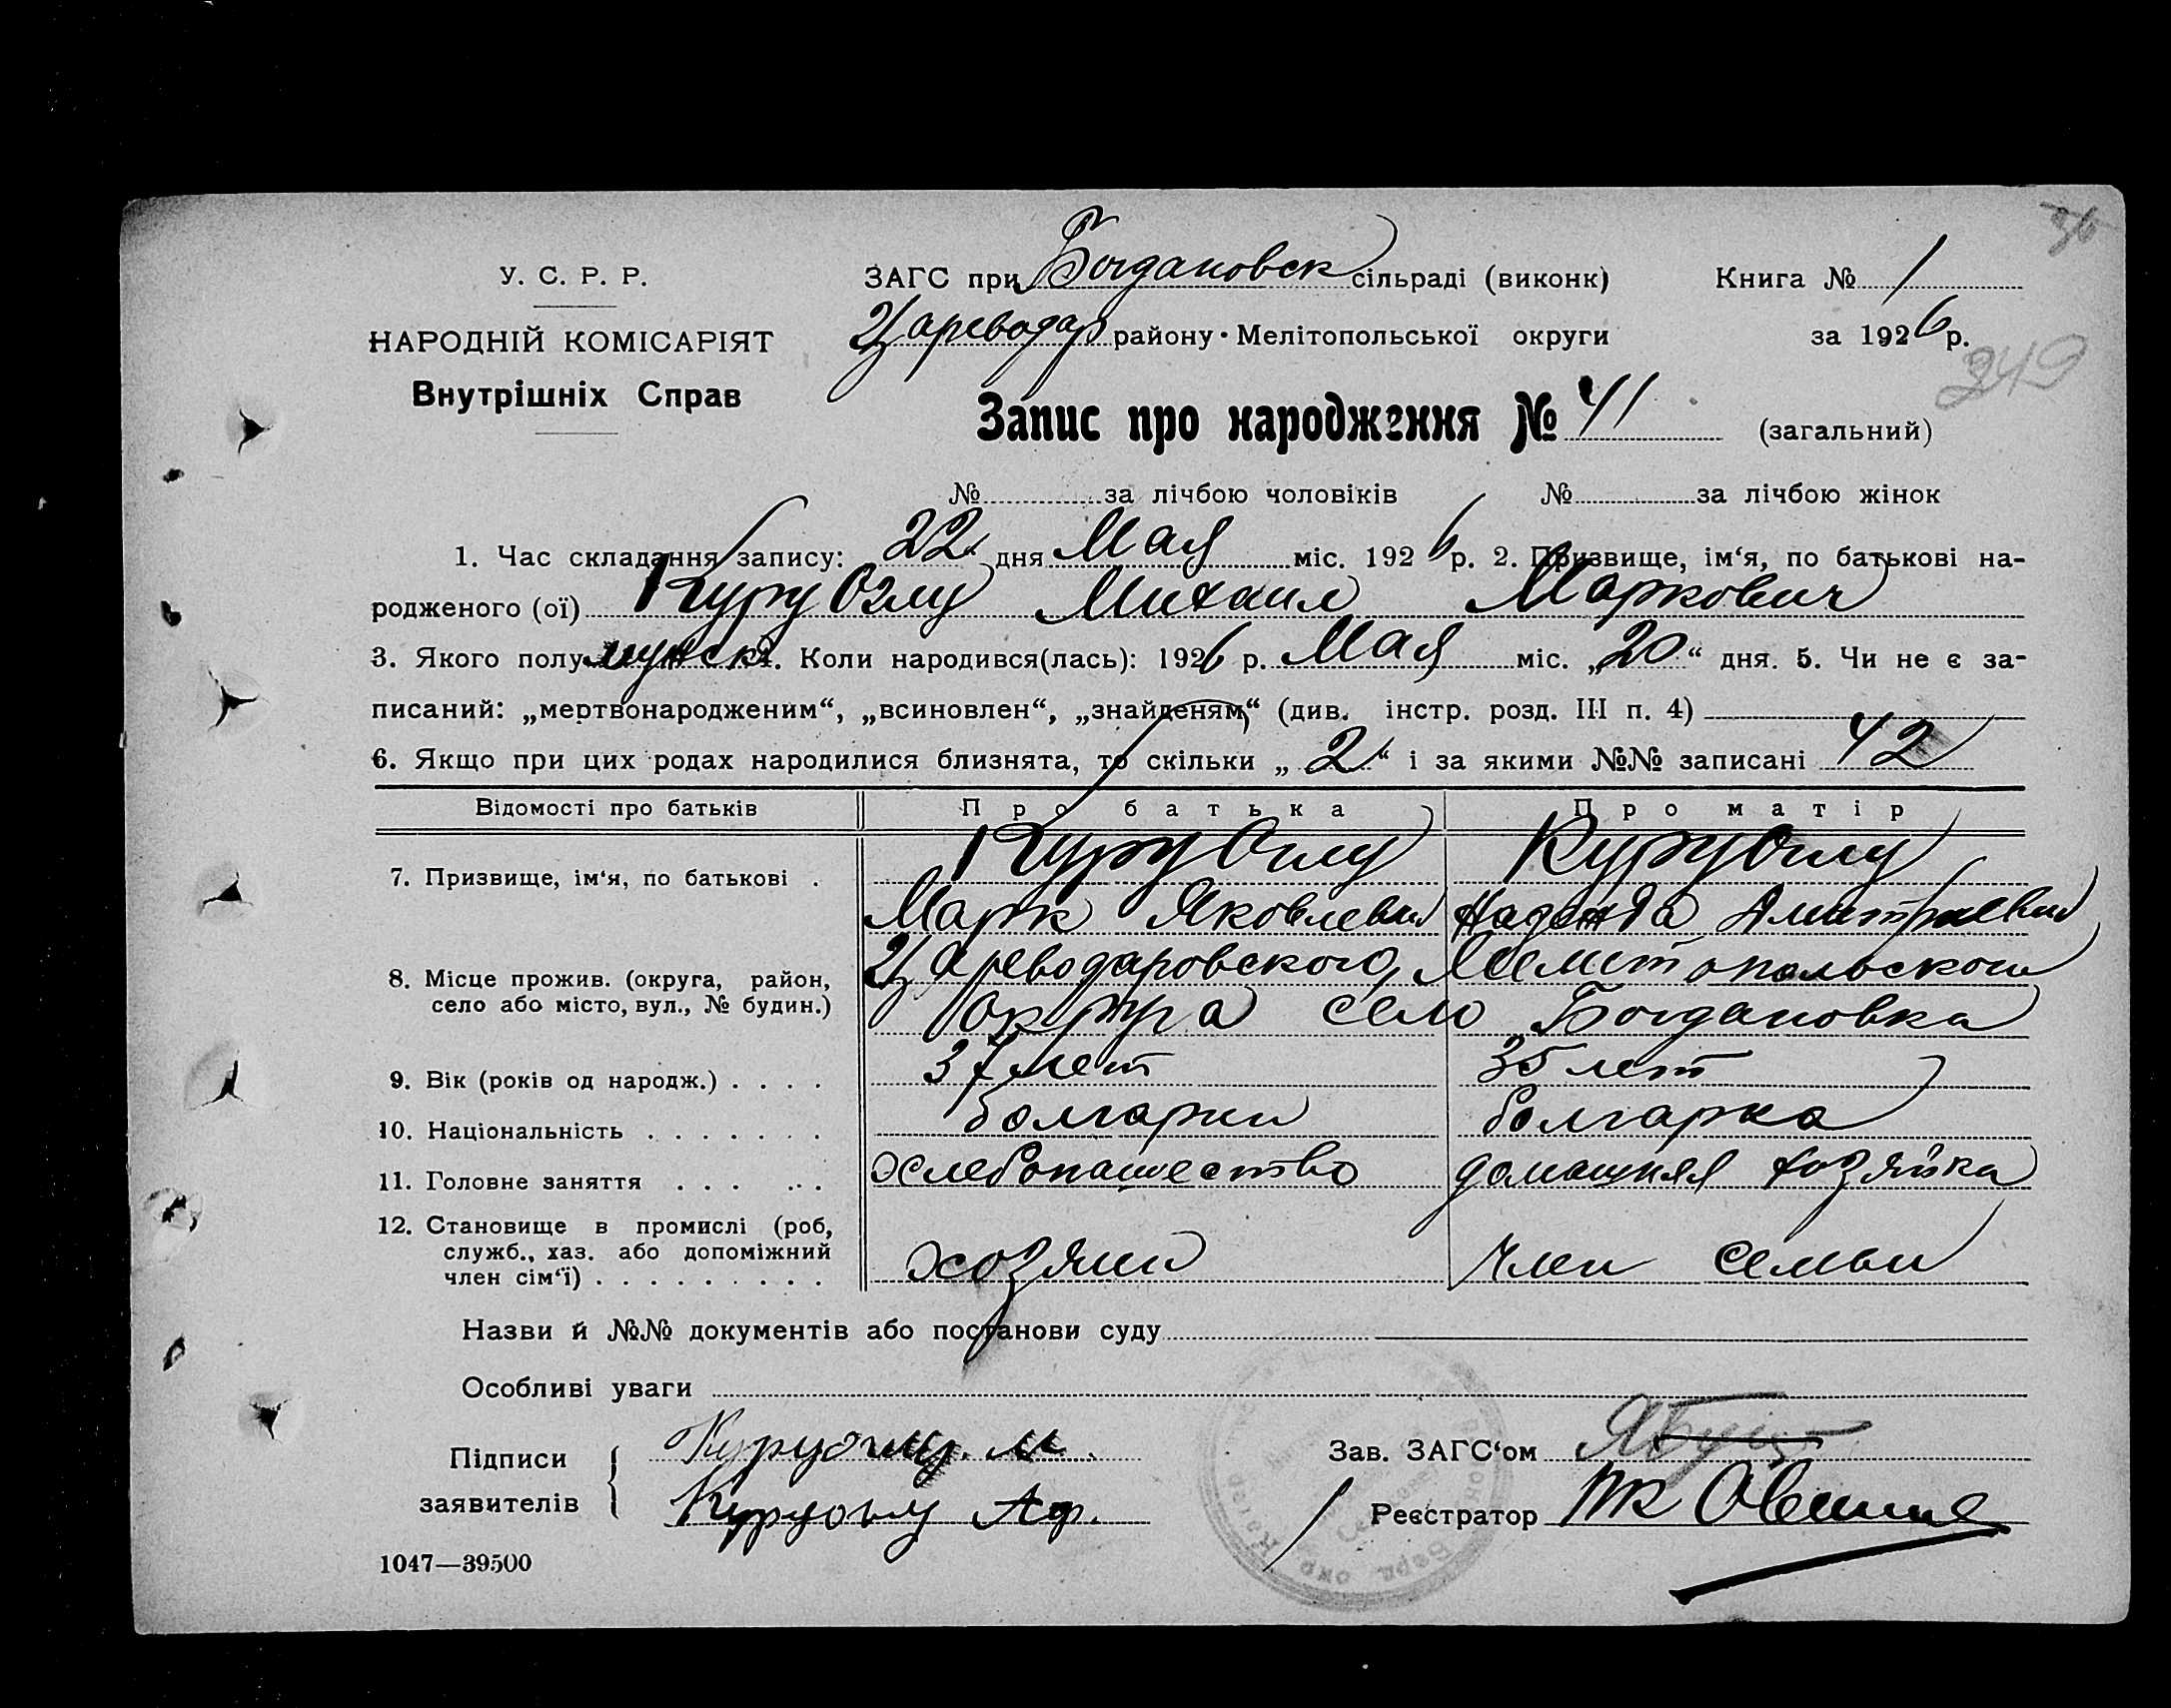 36
У. С. Р. Р.
НАРОДНІЙ КОМІСАРІЯТ
Внутрішніх Справ
ЗАГС при Богдановск сільраді (виконк)
Цареводар району Мелітопольської округи
Книга № 1
за 1926 р.
349
Запис про народження № 41 (загальний)
№ за лічбою чоловіків № за лічбою жінок
1. Час складання запису: 22 дня Мая міс. 1926 р. 2. Призвище, ім‘я, по батькові на-
родженого (ої) Куру Оглу Михаил Маркович
3. Якого полу мужск 4. Коли народився(лась): 1926 р. Мая міс. „20“ дня. 5. Чи не є за-
писаний: „мертвонародженим“, „всиновлен“, „знайденям“ (див. інстр. розд. III п. 4)
6. Якщо при цих родах народилися близнята, то скільки „2“ і за якими №№ записані 42
Відомості про батьків Про батька Про матір
7. Призвище, ім‘я, по батькові . Куру Оглу Куру Оглу
Марк Яковлевич Надежда Дмитриевна
8. Місце прожив. (округа, район, село або місто, вул., № будин.) Цареводаровского, Мелитопольского
Округа село Богдановка
9. Вік (років од народж.) . . . . 37 лет 35 лет
10. Національність . . . . . . . болгарин болгарка
11. Головне заняття . . . . . . хлебопашество домашняя хозяйка
12. Становище в промислі (роб, служб., хаз. або допоміжний член сім‘ї) . . . . . . . . . хозяин член семьи
Назви й №№ документів або постанови суду
Особливі уваги
Підписи заявителів
Куруоглу. М.
Куруоглу Аф.
Зав. ЗАГС‘ом
Реєстратор
1047—39500